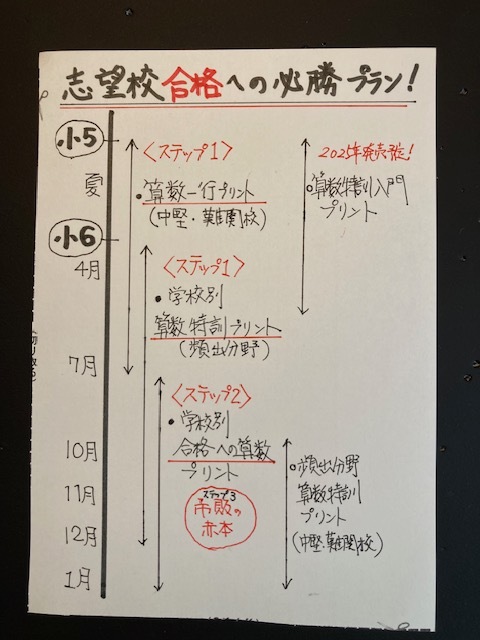 志望校合格への必勝プラン!
小5
夏
小6
4月
7月
10月
11月
12月
1月
〈ステップ1〉
・算数一行プリント
(中堅・難関校)
〈ステップ1〉
・学校別
算数特訓プリント
(頻出分野)
〈ステップ2〉
・学校別
合格への算数
プリント
ステップ3
赤本
2025年発売予定!
・算数特訓入門
プリント
・頻出分野
算数特訓
プリント
(中堅・難関校)